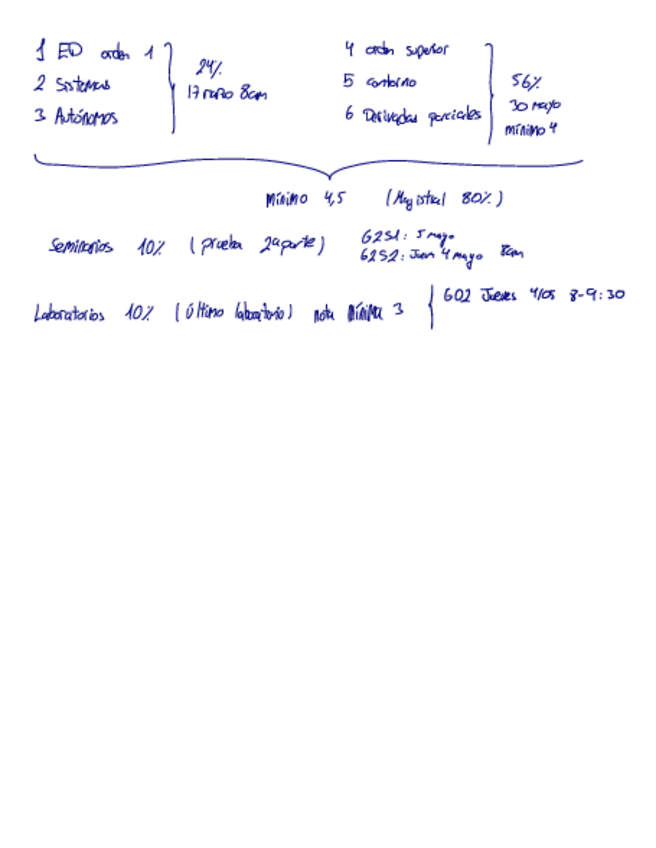 1 ED orden 1
2 Sistemas
3 Autónomos
24%
17 marzo 8am
4 orden superior
5 contorno
6 Derivadas parciales
56%
30 mayo
mínimo 4
mínimo 4,5 (Magistral 80%)
Seminarios 10% (prueba 2ª parte)
G2S1: 5 mayo
G2S2: Juev 4 mayo 8am
Laboratorios 10% (último laboratorio) nota mínima 3
G02 Jueves 4/05 8-9:30